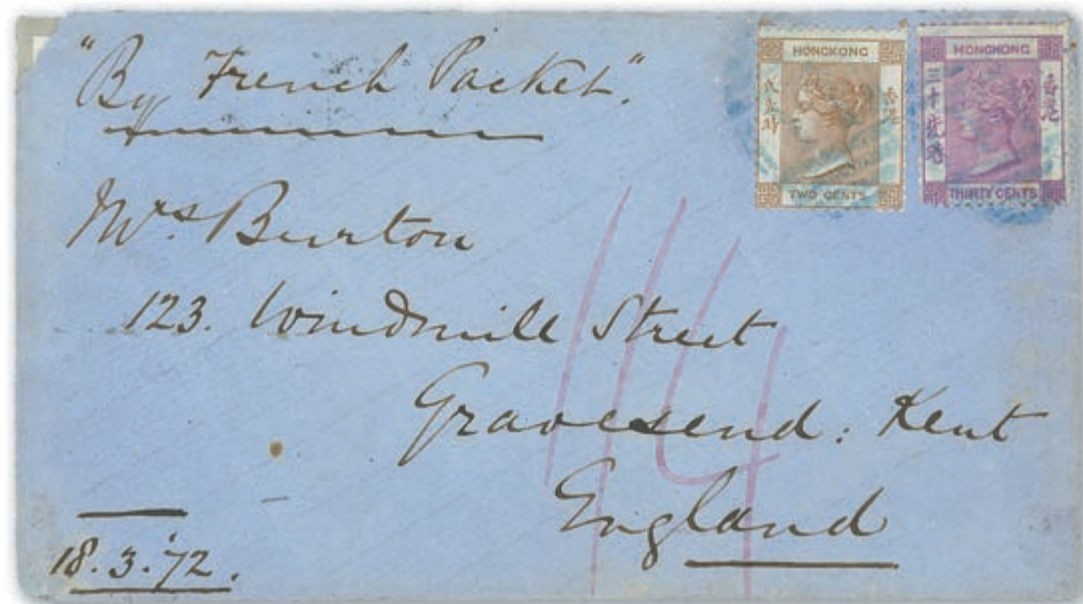 "By French Packet".
HONGKONG
香港
TWO CENTS
HONGKONG
香港
THIRTY CENTS
Mrs Burton
123. Windmill Street
Gravesend: Kent
England
18.3.'72.